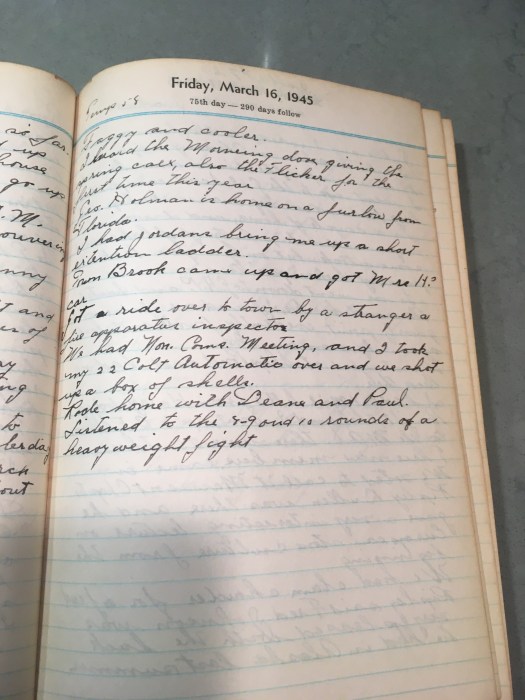 so far.
d up
house
go up
. M.
nny
t and
es of
ay
ng
to
rch
out
Friday, March 16, 1945
75th day — 290 days follow
Foggy and cooler.
I heard the Morneing dove giving the
spring call, also the Flicker for the
first time this year
Geo. Holman is home on a furlow from
Florida.
I had Jordans bring me up a short
extention ladder.
Brook came up and got Mrs H.s
car
Got a ride over to town by a stranger a
fire apparatus inspector
We had Non. Coms. Meeting, and I took
my 22 Colt Automatic over and we shot
up a box of shells.
Rode home with Deane and Paul.
Listened to the 8-9 and 10 rounds of a
heavyweight fight